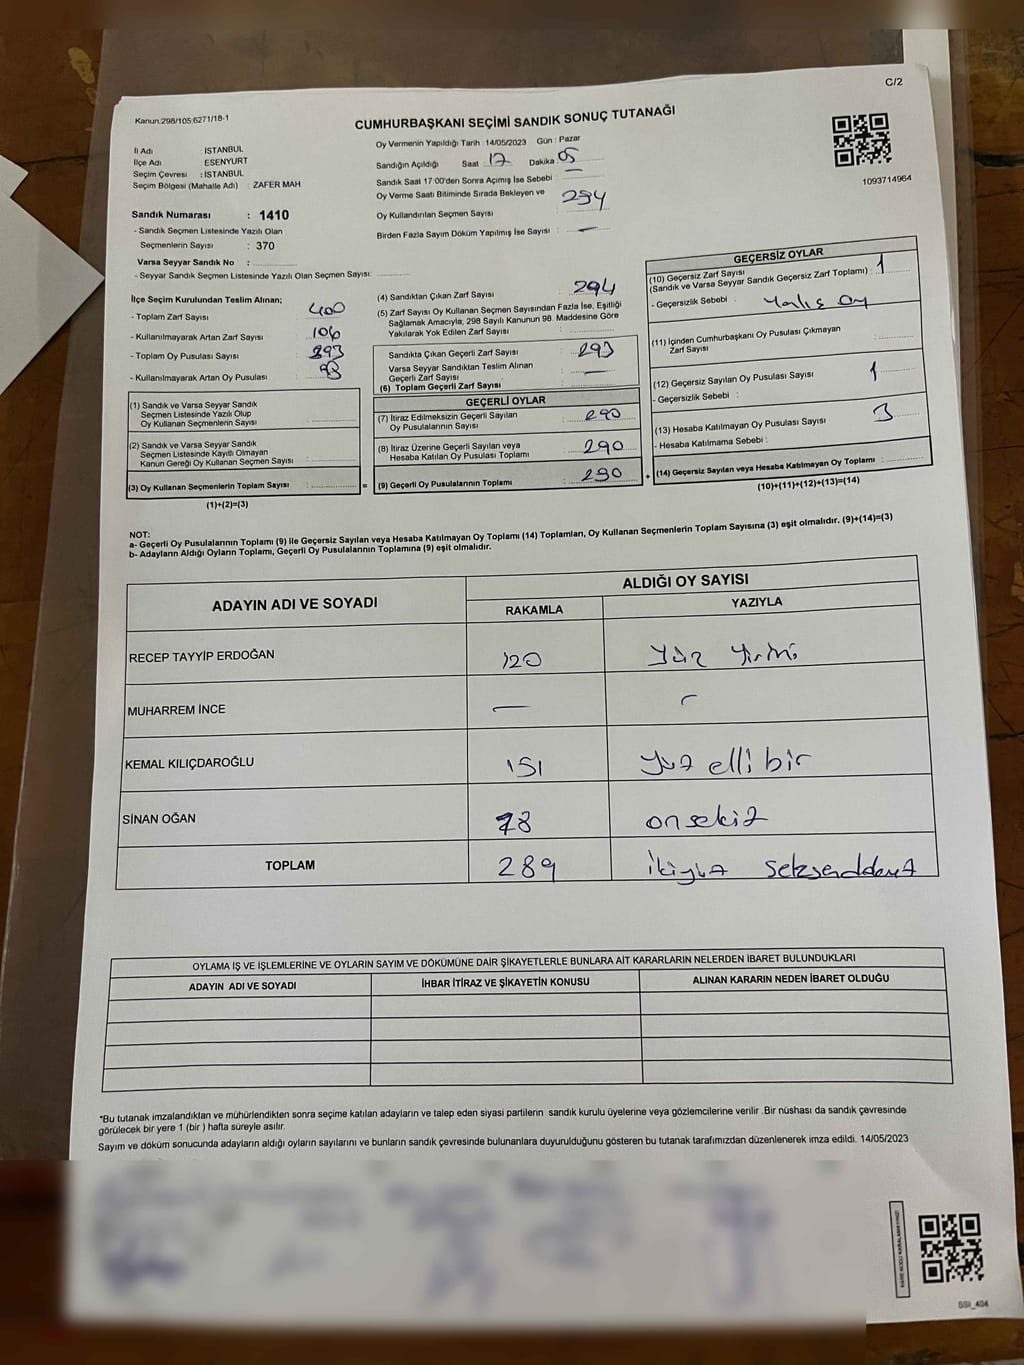 C/2
Kanun:298/105;6271/18-1
CUMHURBAŞKANI SEÇİMİ SANDIK SONUÇ TUTANAĞI
1093714964
İl Adı : İSTANBUL
İlçe Adı : ESENYURT
Seçim Çevresi : İSTANBUL
Seçim Bölgesi (Mahalle Adı) : ZAFER MAH
Sandık Numarası : 1410
- Sandık Seçmen Listesinde Yazılı Olan
Seçmenlerin Sayısı : 370
Varsa Seyyar Sandık No :
- Seyyar Sandık Seçmen Listesinde Yazılı Olan Seçmen Sayısı:
Oy Vermenin Yapıldığı Tarih :14/05/2023 Gün : Pazar
Sandığın Açıldığı Saat : 17 Dakika : 05
Sandık Saat 17:00'den Sonra Açımış İse Sebebi : —
Oy Verme Saati Bitiminde Sırada Bekleyen ve
Oy Kullandırılan Seçmen Sayısı : 294
Birden Fazla Sayım Döküm Yapılmış İse Sayısı : —
İlçe Seçim Kurulundan Teslim Alınan;
- Toplam Zarf Sayısı : 400
- Kullanılmayarak Artan Zarf Sayısı : 106
- Toplam Oy Pusulası Sayısı : 393
- Kullanılmayarak Artan Oy Pusulası :
(1) Sandık ve Varsa Seyyar Sandık
Seçmen Listesinde Yazılı Olup
Oy Kullanan Seçmenlerin Sayısı :
(2) Sandık ve Varsa Seyyar Sandık
Seçmen Listesinde Kayıtlı Olmayan
Kanun Gereği Oy Kullanan Seçmen Sayısı :
(3) Oy Kullanan Seçmenlerin Toplam Sayısı : =
(1)+(2)=(3)
(4) Sandıktan Çıkan Zarf Sayısı : 294
(5) Zarf Sayısı Oy Kullanan Seçmen Sayısından Fazla İse, Eşitliği
Sağlamak Amacıyla, 298 Sayılı Kanunun 98. Maddesine Göre
Yakılarak Yok Edilen Zarf Sayısı :
Sandıkta Çıkan Geçerli Zarf Sayısı : 293
Varsa Seyyar Sandıktan Teslim Alınan
Geçerli Zarf Sayısı : —
(6) Toplam Geçerli Zarf Sayısı :
GEÇERLİ OYLAR
(7) İtiraz Edilmeksizin Geçerli Sayılan
Oy Pusulalarının Sayısı : 290
(8) İtiraz Üzerine Geçerli Sayılan veya
Hesaba Katılan Oy Pusulası Toplamı : 290
(9) Geçerli Oy Pusulalarının Toplamı : 290 +
GEÇERSİZ OYLAR
(10) Geçersiz Zarf Sayısı
(Sandık ve Varsa Seyyar Sandık Geçersiz Zarf Toplamı) : 1
- Geçersizlik Sebebi : Yalış Oy
(11) İçinden Cumhurbaşkanı Oy Pusulası Çıkmayan
Zarf Sayısı :
(12) Geçersiz Sayılan Oy Pusulası Sayısı : 1
- Geçersizlik Sebebi :
(13) Hesaba Katılmayan Oy Pusulası Sayısı : 3
- Hesaba Katılmama Sebebi :
(14) Geçersiz Sayılan veya Hesaba Katılmayan Oy Toplamı :
(10)+(11)+(12)+(13)=(14)
NOT:
a- Geçerli Oy Pusulalarının Toplamı (9) ile Geçersiz Sayılan veya Hesaba Katılmayan Oy Toplamı (14) Toplamları, Oy Kullanan Seçmenlerin Toplam Sayısına (3) eşit olmalıdır. (9)+(14)=(3)
b- Adayların Aldığı Oyların Toplamı, Geçerli Oy Pusulalarının Toplamına (9) eşit olmalıdır.
ADAYIN ADI VE SOYADI ALDIĞI OY SAYISI
RAKAMLA YAZIYLA
RECEP TAYYİP ERDOĞAN 120 Yüz Yirmi
MUHARREM İNCE — —
KEMAL KILIÇDAROĞLU 151 Yüz elli bir
SİNAN OĞAN 18 onsekiz
TOPLAM 289 İkiyüz Seksendokuz
OYLAMA İŞ VE İŞLEMLERİNE VE OYLARIN SAYIM VE DÖKÜMÜNE DAİR ŞİKAYETLERLE BUNLARA AİT KARARLARIN NELERDEN İBARET BULUNDUKLARI
ADAYIN ADI VE SOYADI İHBAR İTİRAZ VE ŞİKAYETİN KONUSU ALINAN KARARIN NEDEN İBARET OLDUĞU
*Bu tutanak imzalandıktan ve mühürlendikten sonra seçime katılan adayların ve talep eden siyasi partilerin sandık kurulu üyelerine veya gözlemcilerine verilir .Bir nüshası da sandık çevresinde
görülecek bir yere 1 (bir ) hafta süreyle asılır.
Sayım ve döküm sonucunda adayların aldığı oyların sayılarını ve bunların sandık çevresinde bulunanlara duyurulduğunu gösteren bu tutanak tarafımızdan düzenlenerek imza edildi. 14/05/2023
SSI_404